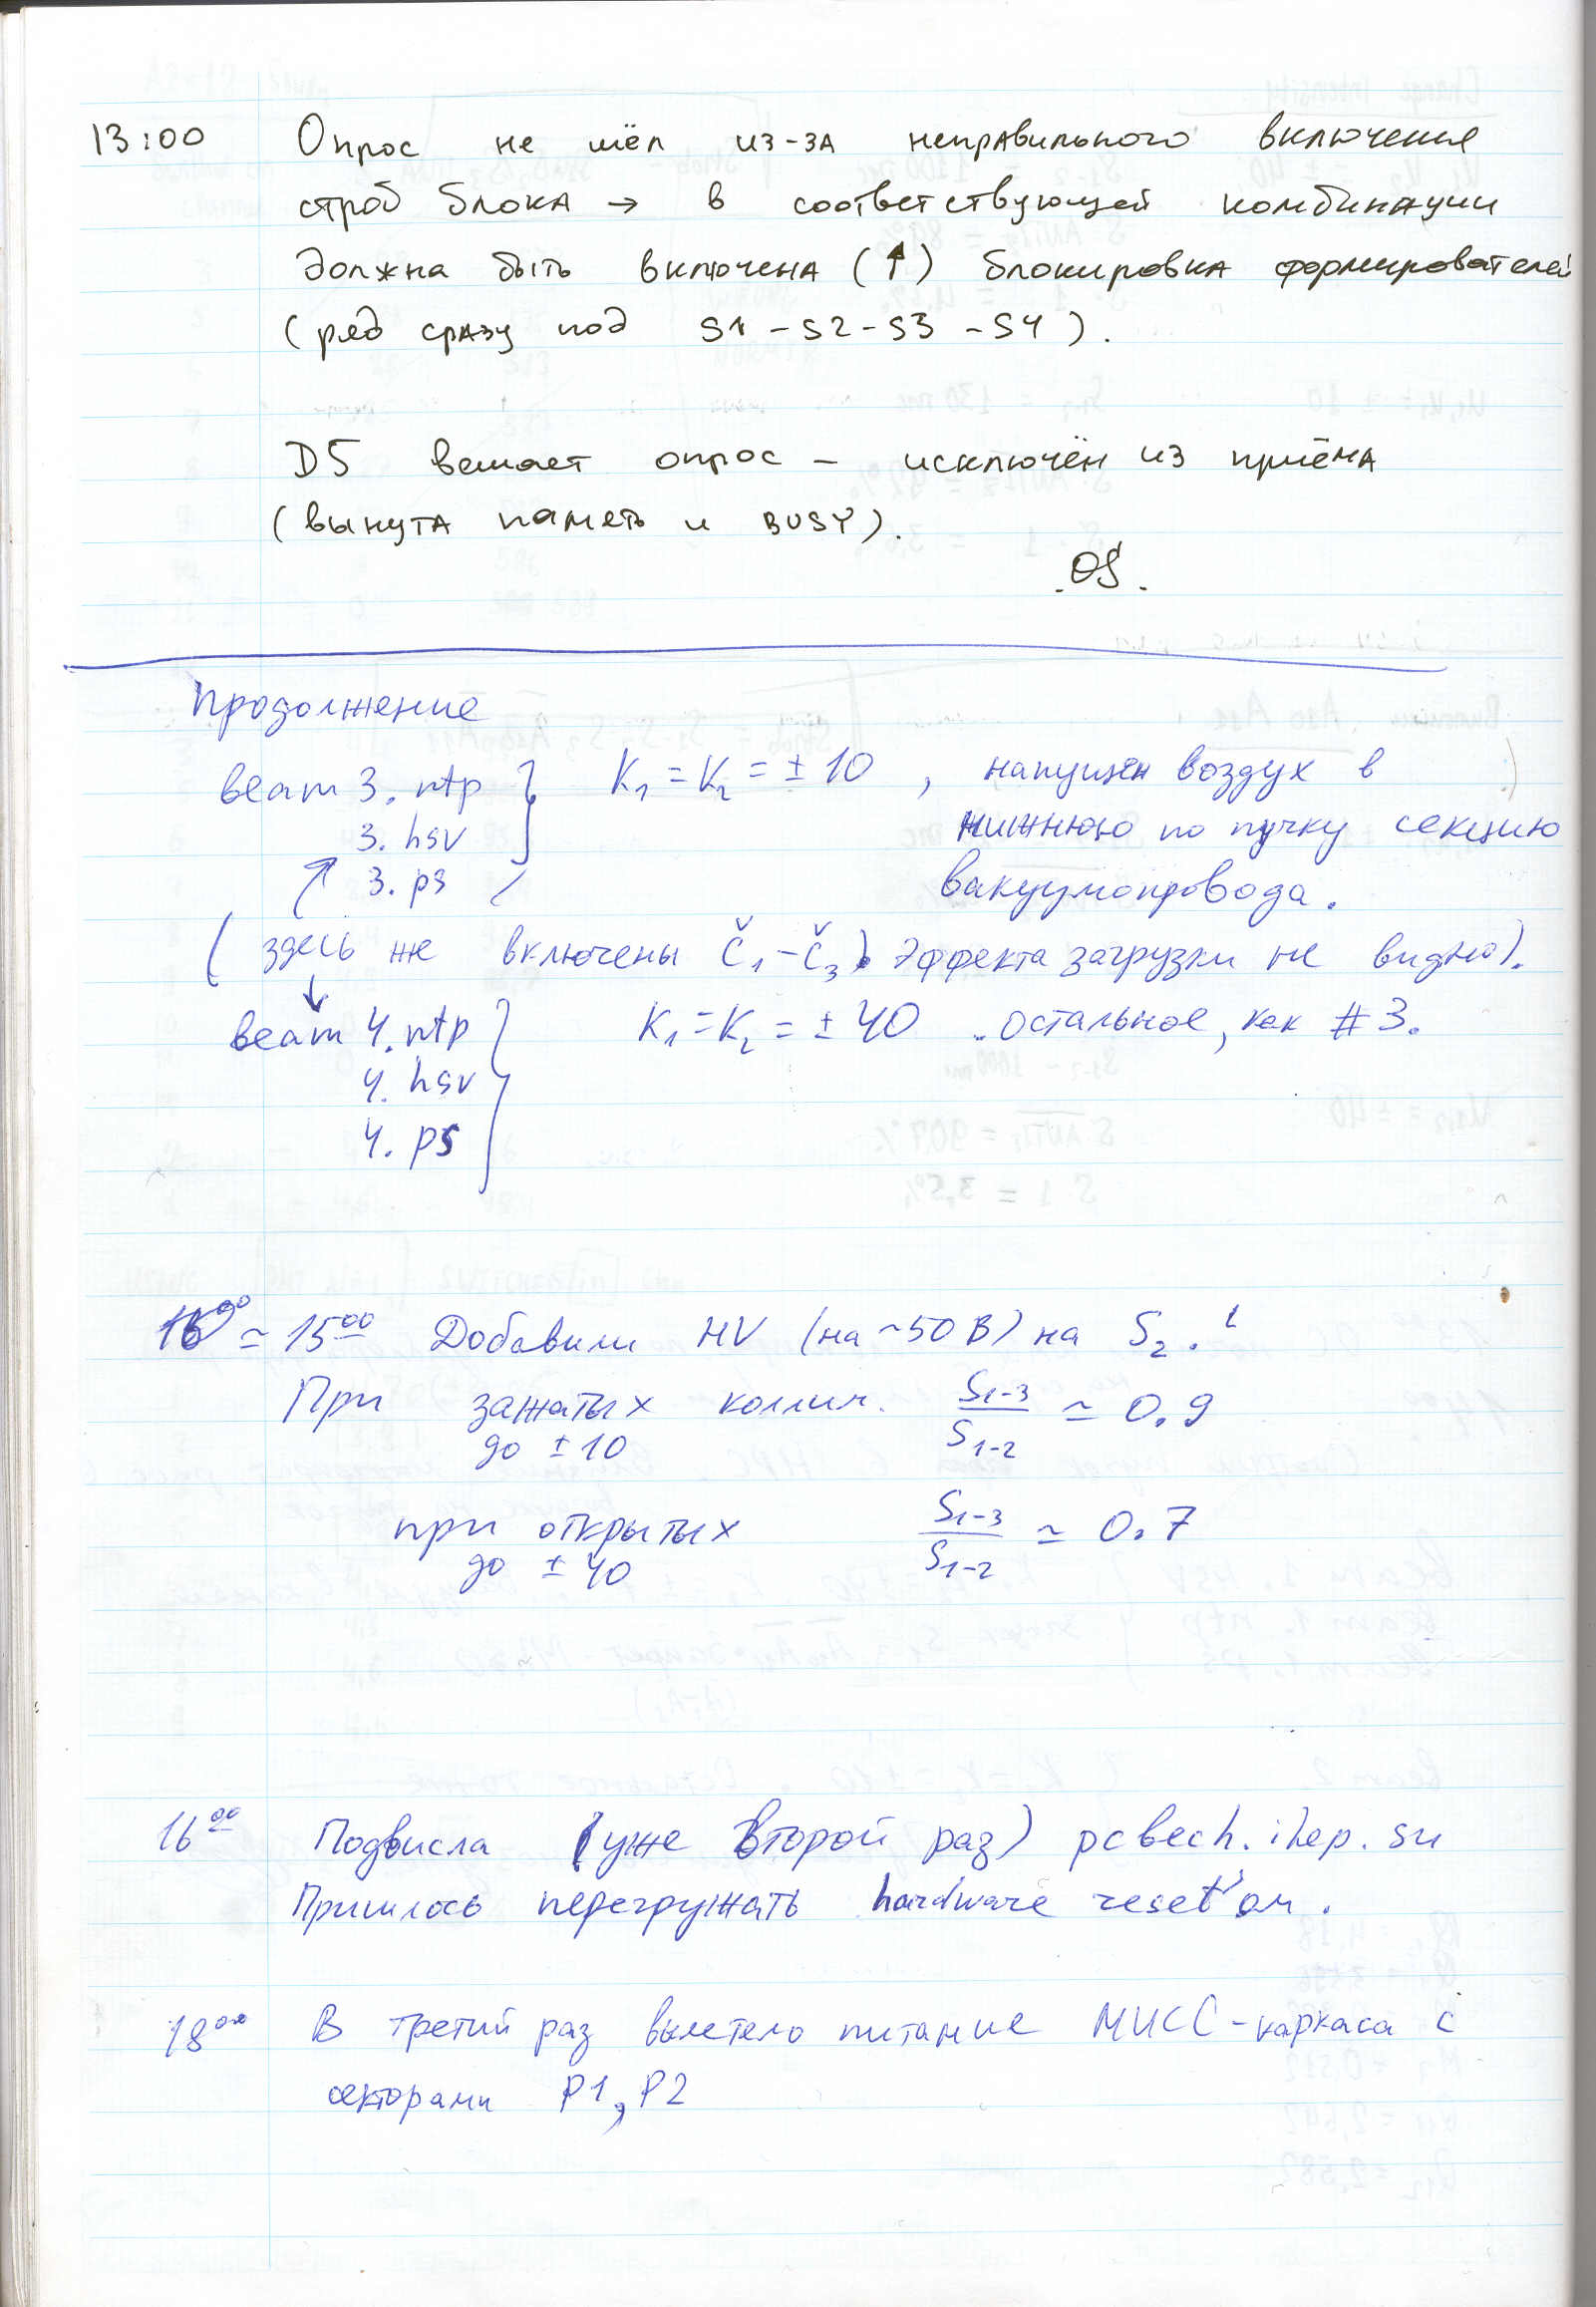 13:00 Опрос не шёл из-за неправильного включения
строб блока → в соответствующей комбинации
должна быть включена (↑) блокировка формирователей
(ряд сразу под S1-S2-S3-S4).
D5 вешает опрос – исключён из приёма
(вынута память и BUSY).
OS.
Продолжение
beam 3. ntp } K₁ = K₂ = ± 10 , напущен воздух в
3. hsv нижнюю по пучку секцию
3. ps вакуумопровода.
(здесь же включены Č₁-Č₃. Эффекта загрузки не видно).
beam 4. ntp } K₁ = K₂ = ± 40 . Остальное, как #3.
4. hsv
4. ps
≃ 15⁰⁰ Добавили HV (на ~50 В) на S₂.
При зажатых коллим. S₁₋₃/S₁₋₂ ≃ 0.9
до ± 10
при открытых S₁₋₃/S₁₋₂ ≃ 0.7
до ± 40
16⁰⁰ Подвисла (уже второй раз) pcbech.ihep.su
Пришлось перегружать hardware reset'ом.
18⁰⁰ В третий раз вылетело питание МИСС-каркаса с
секторами P1, P2